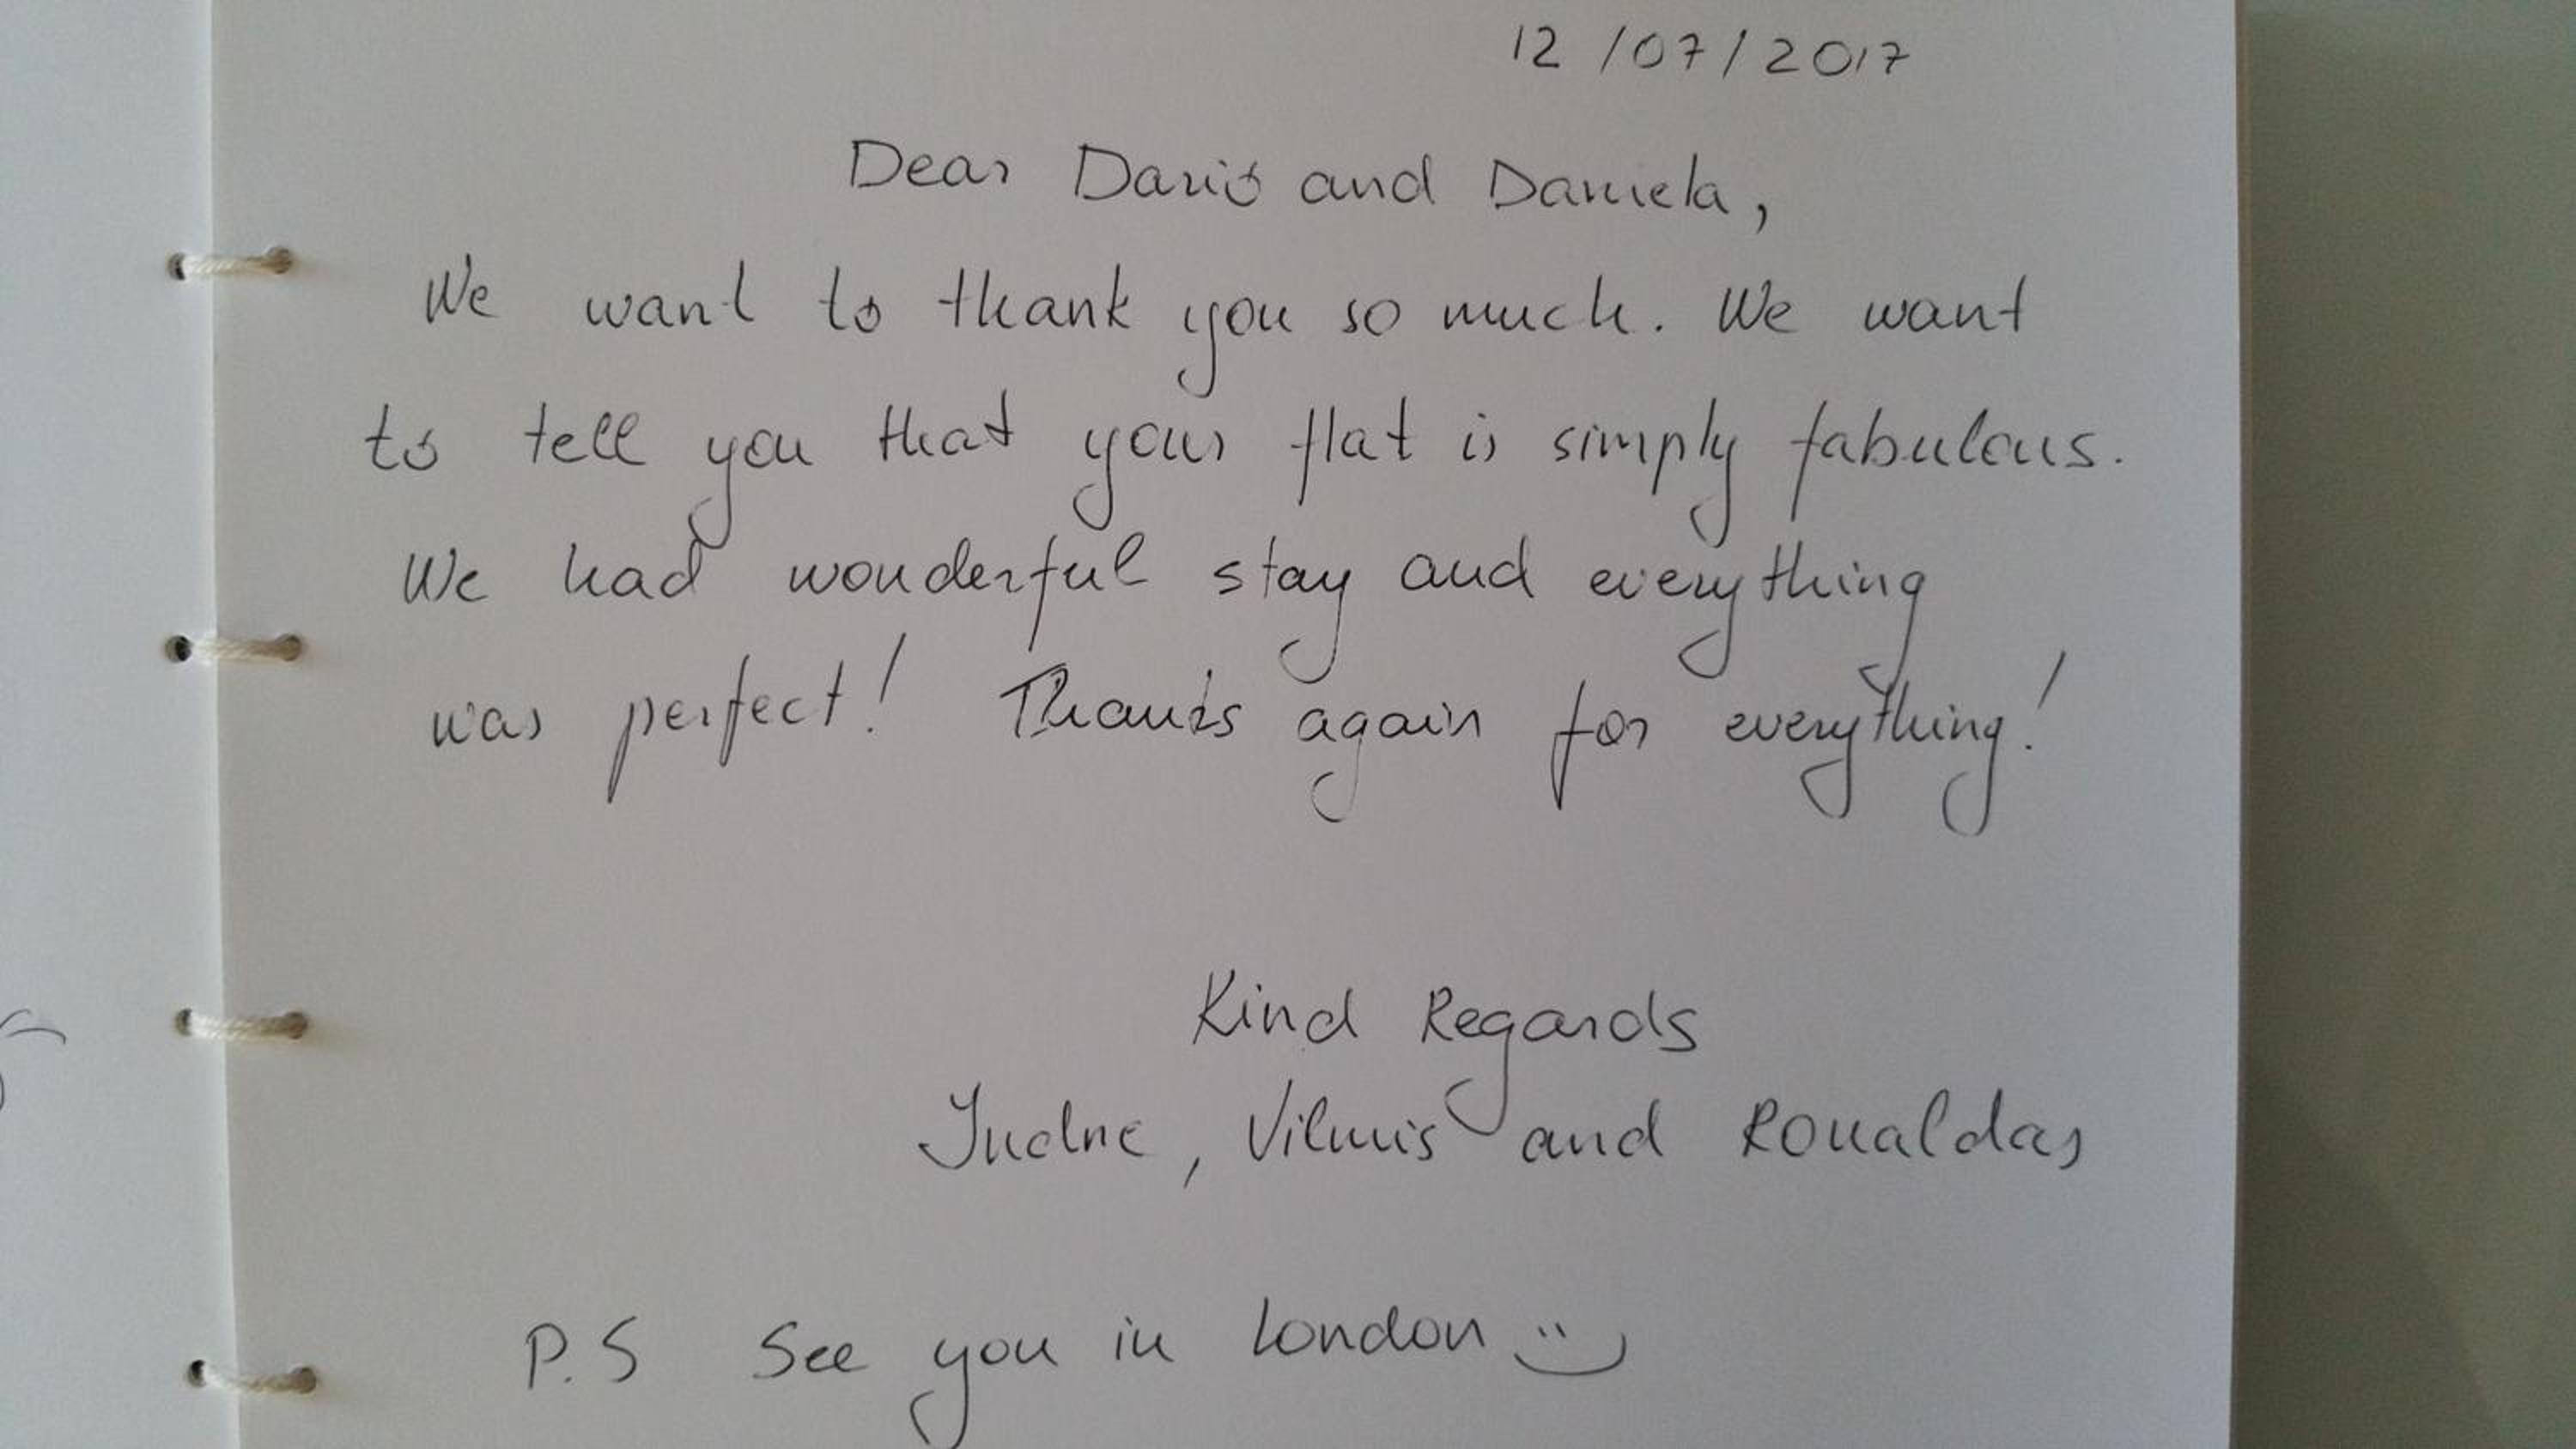 12/07/2017
Dear Dario and Daniela,
We want to thank you so much. We want
to tell you that your flat is simply fabulous.
We had wonderful stay and everything
was perfect! Thanks again for everything!
Kind Regards
and
P.S See you in London